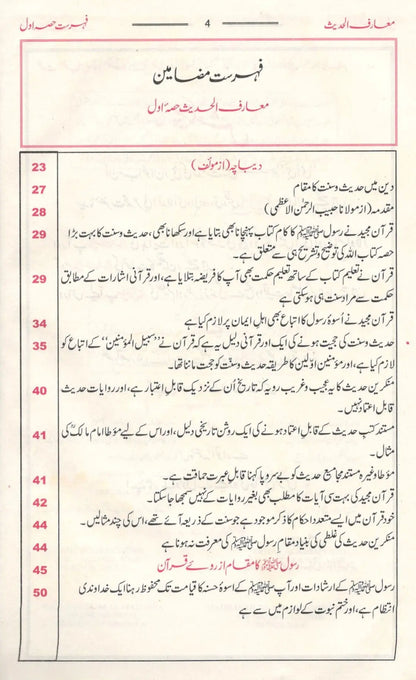 معارف الحدیث 4 فہرست حصہ اول
فہرست مضامین
معارف الحدیث حصہ اول
دیباچہ (از مؤلف) 23
دین میں حدیث وسنت کا مقام 27
مقدمہ (از مولانا حبیب الرحمٰن الاعظمی) 28
قرآن مجید نے رسول ﷺ کا کام کتاب پہنچانا بھی بتایا ہے اور سکھانا بھی، حدیث وسنت کا بہت بڑا 29
حصہ کتاب اللہ کی توضیح وتشریح ہی سے متعلق ہے۔
قرآن نے تعلیم کتاب کے ساتھ تعلیم حکمت بھی آپ کا فریضہ بتلایا ہے، اور قرآنی اشارات کے مطابق 29
حکمت سے مراد سنت ہی ہو سکتی ہے
قرآن مجید نے اُسوۂ رسول کا اتباع بھی اہل ایمان پر لازم کیا ہے 34
حدیث وسنت کی حجیت ہونے کی ایک اور قرآنی دلیل یہ ہے کہ قرآن نے ”سبیل المؤمنین“ کے اتباع کو 35
لازم کیا ہے، اور مؤمنین اوّلین کا طریقہ حدیث وسنّت کو حجت ماننا تھا۔
منکرین حدیث کا یہ عجیب وغریب رویہ کہ تاریخ اُن کے نزدیک قابلِ اعتبار ہے، اور روایات حدیث 40
قابل اعتماد نہیں۔
مستند کتب حدیث کے قابلِ اعتماد ہونے کی ایک روشن تاریخی دلیل، اور اس کے لیے مؤطا امام مالکؒ کی 41
مثال۔
مؤطا وغیرہ مستند مجامیع حدیث کو بے سروپا کہنا قابلِ عبرت حماقت ہے۔ 41
قرآن مجید کی بہت سی آیات کا مطلب بھی بغیر روایات کے نہیں سمجھا جا سکتا۔ 42
خود قرآن میں ایسے متعدد احکام کا ذکر موجود ہے جو سنت کے ذریعہ آئے تھے، اس کی چند مثالیں۔ 44
منکرین حدیث کی غلطی کی بنیاد مقامِ رسول ﷺ کی معرفت نہ ہونا ہے 44
رسول ﷺ کا مقام از روئے قرآن 45
رسول ﷺ کے ارشادات اور آپ ﷺ کے اُسوۂ حسنہ کا قیامت تک محفوظ رہنا ایک خداوندی 50
انتظام ہے، اور ختم نبوت کے لوازم میں سے ہے